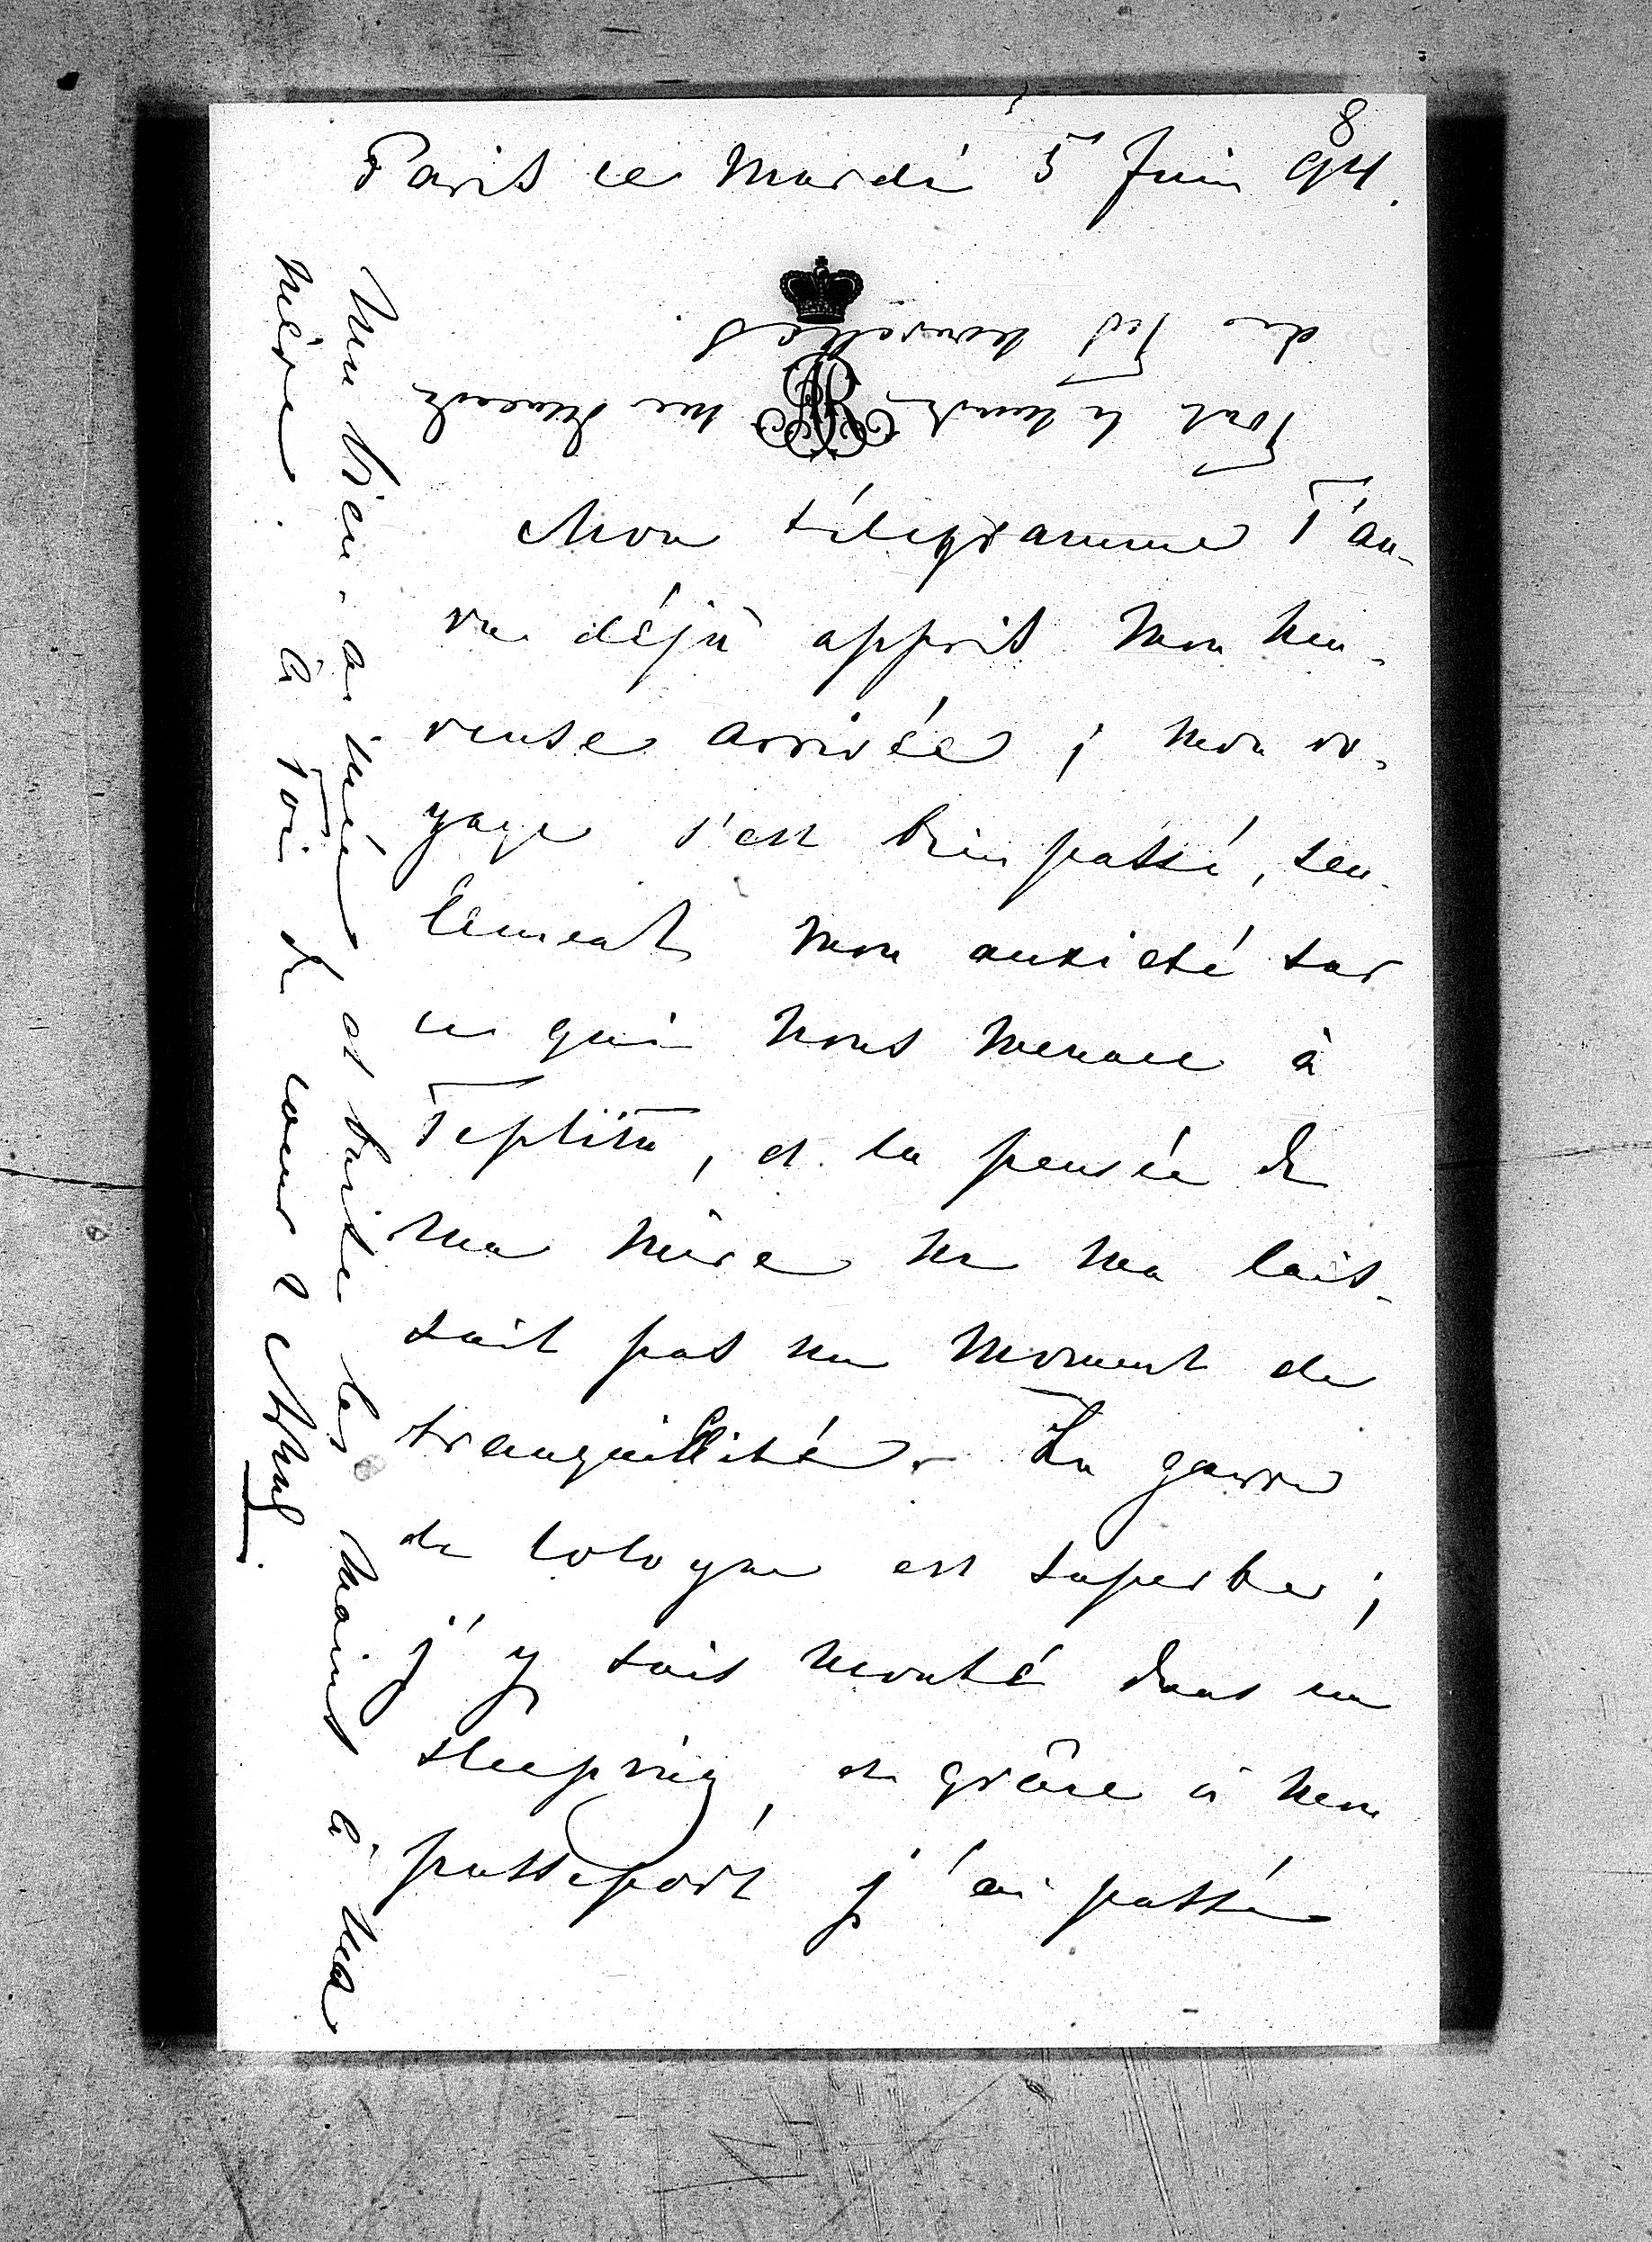 8
Paris le Mardi 5 Juin 94.
Tout le monde me demande
de Tes nouvelles
AR
Mon télégramme T'au-
ra déjà appris mon heu-
reuse arrivée ; mon vo-
yage s'est bien passé, seu-
lement mon anxieté sur
ce qui nous menace à
Teplitz, et la pensée de
ma mère ne me lais-
sait pas un moment de
tranquillité. La garre
de Cologne est superbe ;
j'y suis monté dans un
sleeping, et grâce à mon
passeport j'ai passé
mon bien-aimée et baise les mains à ma
mère. à Toi de cœur